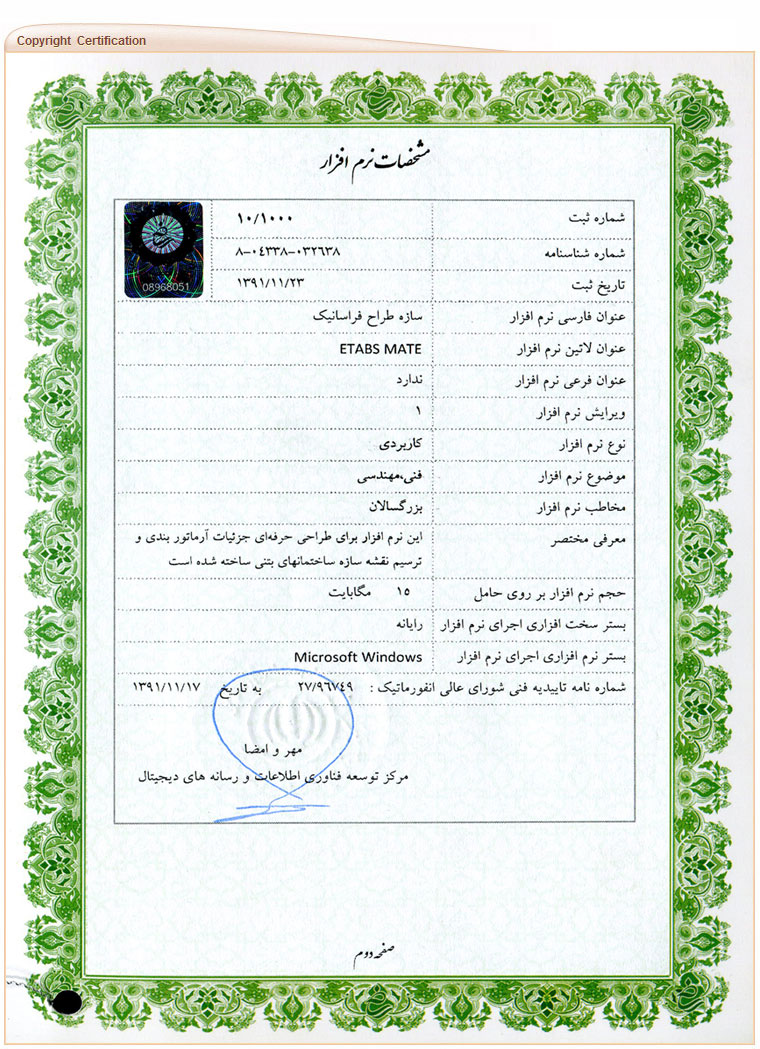 Copyright Certification
مشخصات نرم افزار
شماره ثبت ۱۰/۱۰۰۰
شماره شناسنامه ۸-۰٤۳۳۸-۰۳۲٦۳۸
تاریخ ثبت ۱۳۹۱/۱۱/۲۳
08968051
عنوان فارسی نرم افزار سازه طراح فراسانیک
عنوان لاتین نرم افزار ETABS MATE
عنوان فرعی نرم افزار ندارد
ویرایش نرم افزار ۱
نوع نرم افزار کاربردی
موضوع نرم افزار فنی،مهندسی
مخاطب نرم افزار بزرگسالان
معرفی مختصر این نرم افزار برای طراحی حرفه‌ای جزئیات آرماتور بندی و
ترسیم نقشه سازه ساختمانهای بتنی ساخته شده است
حجم نرم افزار بر روی حامل ۱۵ مگابایت
بستر سخت افزاری اجرای نرم افزار رایانه
بستر نرم افزاری اجرای نرم افزار Microsoft Windows
شماره نامه تاییدیه فنی شورای عالی انفورماتیک : ۲۷/۹٦۷٤۹ به تاریخ ۱۳۹۱/۱۱/۱۷
مهر و امضا
مرکز توسعه فناوری اطلاعات و رسانه های دیجیتال
صفحه دوم